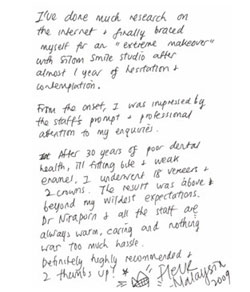 I've done much research on
the internet & finally braced
myself for an "extreme makeover"
with Silom Smile Studio after
almost 1 year of hesitation &
contemplation.
From the onset, I was impressed by
the staff's prompt & professional
attention to my enquiries.
After 30 years of poor dental
health, ill fitting bite & weak
enamel, I underwent 18 veneers &
2 crowns. The result was above &
beyond my wildest expectations.
Dr Niraporn & all the staff are
always warm, caring and nothing
was too much hassle.
Definitely highly recommended &
2 thumbs up!
Malaysia
2009